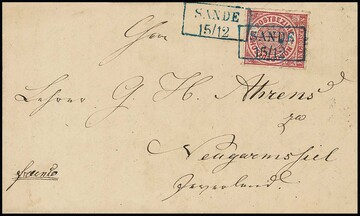 SANDE
15/12
SANDE
15/12
Herrn
Lehrer G. H. Ahrens
zu
Neugarmssiel
Jeverland.
franco